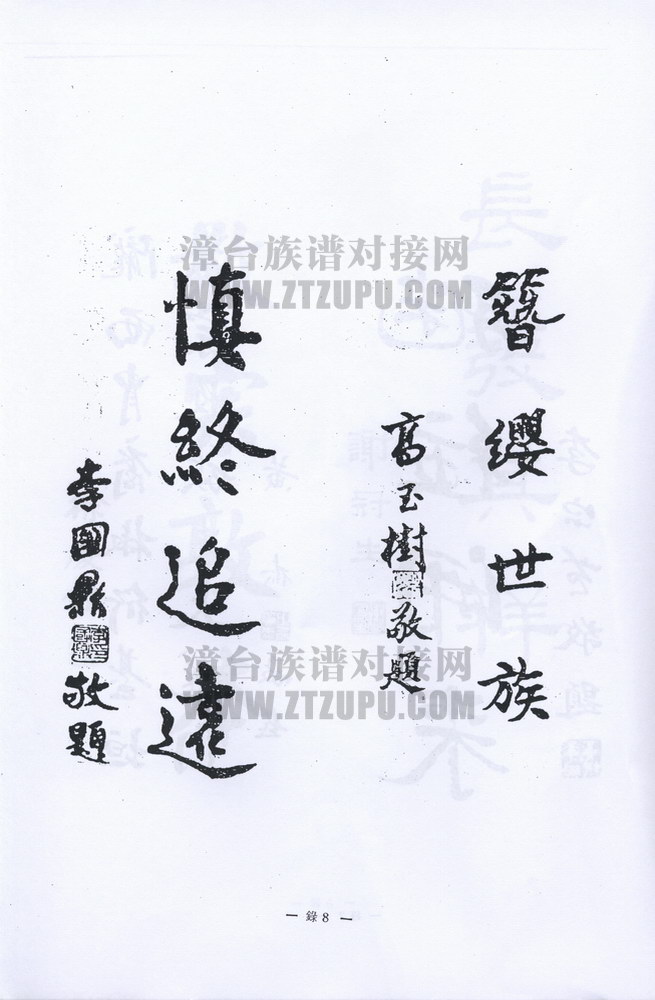 簪纓世族
高玉樹
敬題
慎終追遠
李國鼎
敬題
漳台族谱对接网
WWW.ZTZUPU.COM
漳台族谱对接网
WWW.ZTZUPU.COM
— 錄 8 —